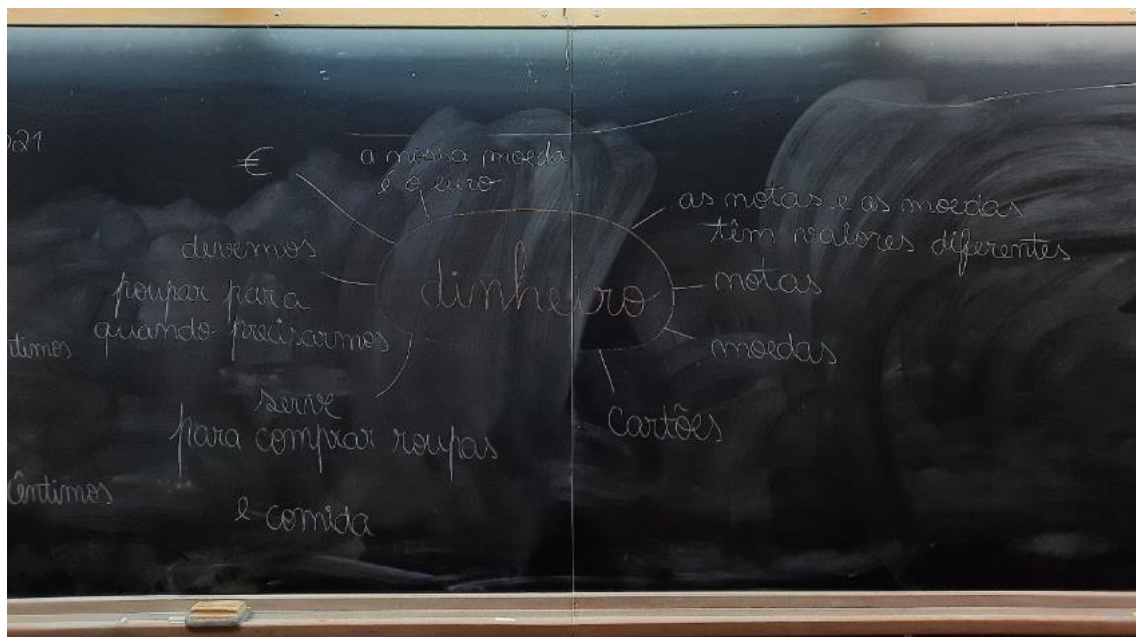 021
€
a nossa moeda
é o euro
as notas e as moedas
têm valores diferentes
devemos
poupar para
quando precisarmos
dinheiro
notas
moedas
cartões
serve
para comprar roupas
e comida
ntimos
cêntimos